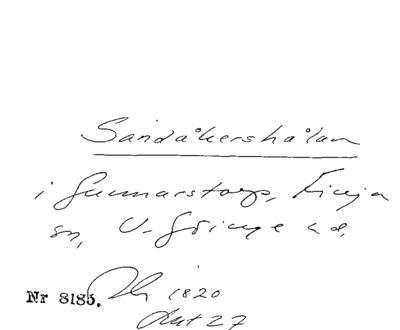 Sandåkershålan
i Gunnarstorp, Finja
sn, V. Göinge hd.
Nr 8185. 1820
Akt 27